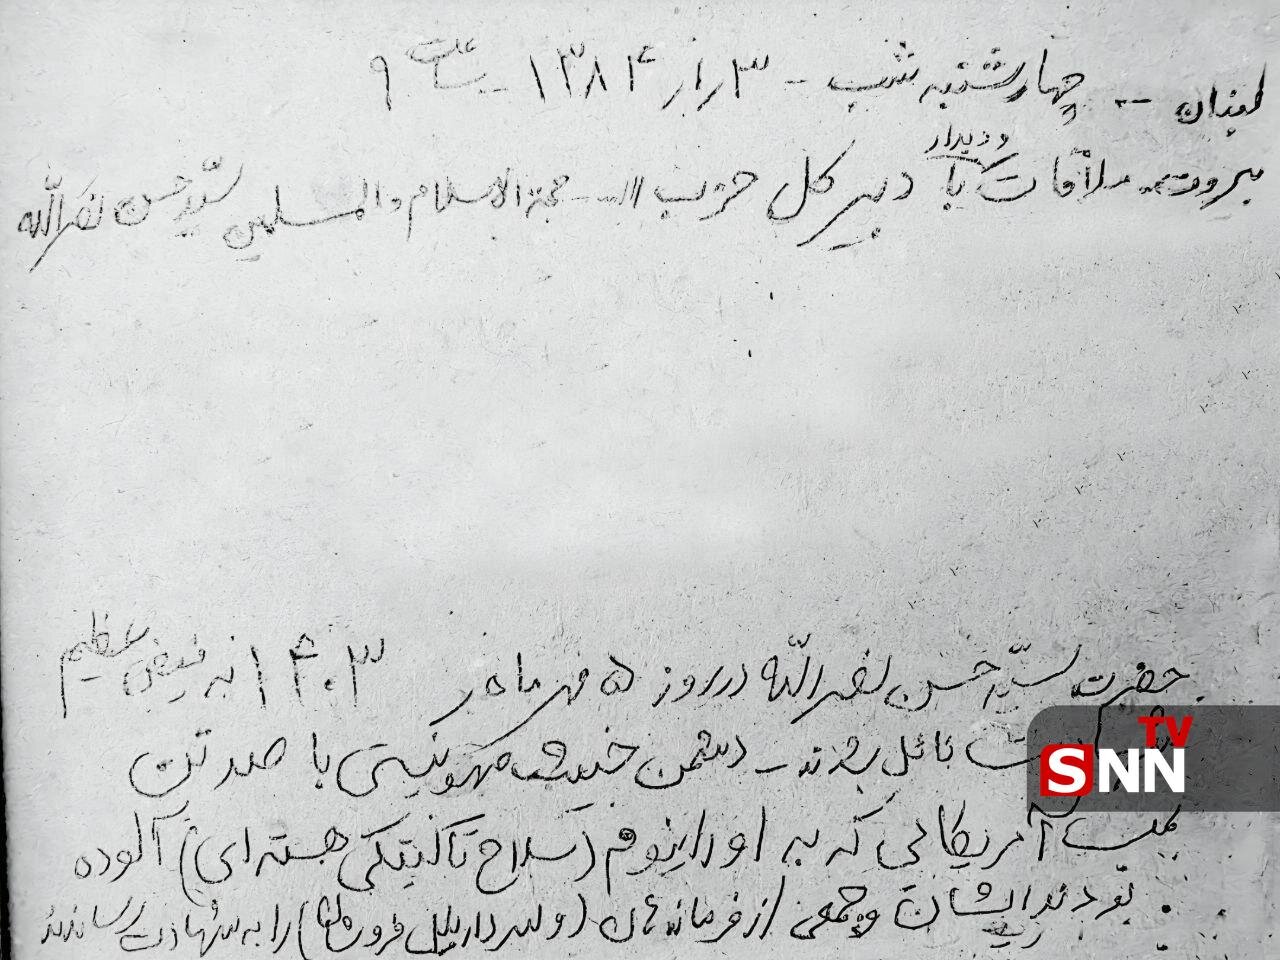 لبنان -- چهارشنبه شب - ۱۳۸۴٫۱٫۳ - ساعت ۹
بیروت - ملاقات و دیدار با دبیر کل حزب الله - حجة الاسلام والمسلمین سیّد حسن نصراللّه
حضرت سیّد حسن نصراللّه در روز ۵ مهر ماه ۱۴۰۳ به فیض عظیم
نائل شدند - دشمن خبیث صهونیستی با صد تن
بمب آمریکائی که به اورانیوم (سلاح تاکتیکی هسته ای) آلوده
بودند ایشان و جمعی از فرمانده هان (و سردار نیل فروشان) را به شهادت رساندند
SNN TV